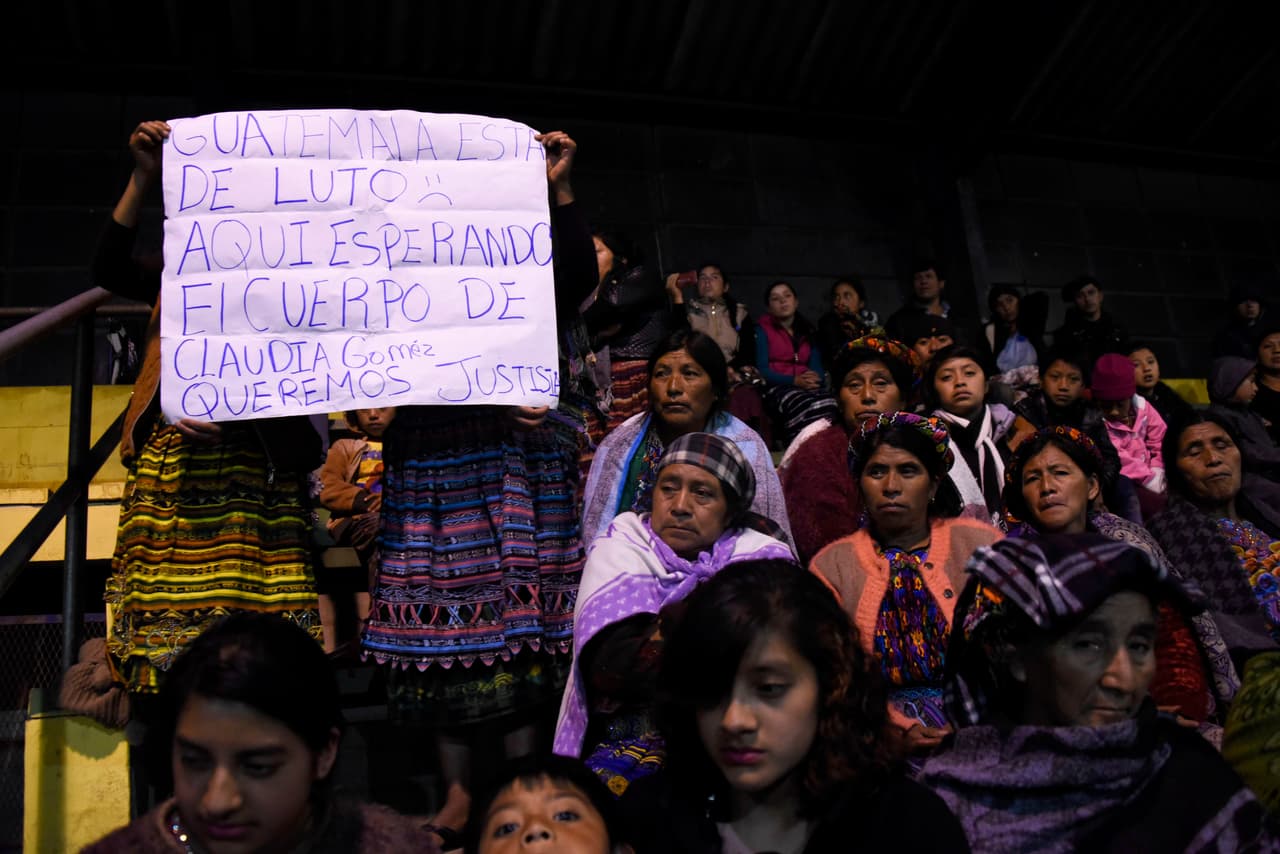 GUATEMALA ESTA
DE LUTO :(
AQUI ESPERANDO
El CUERPO DE
CLAUDIA Goméz
QUEREMOS JUSTISIA